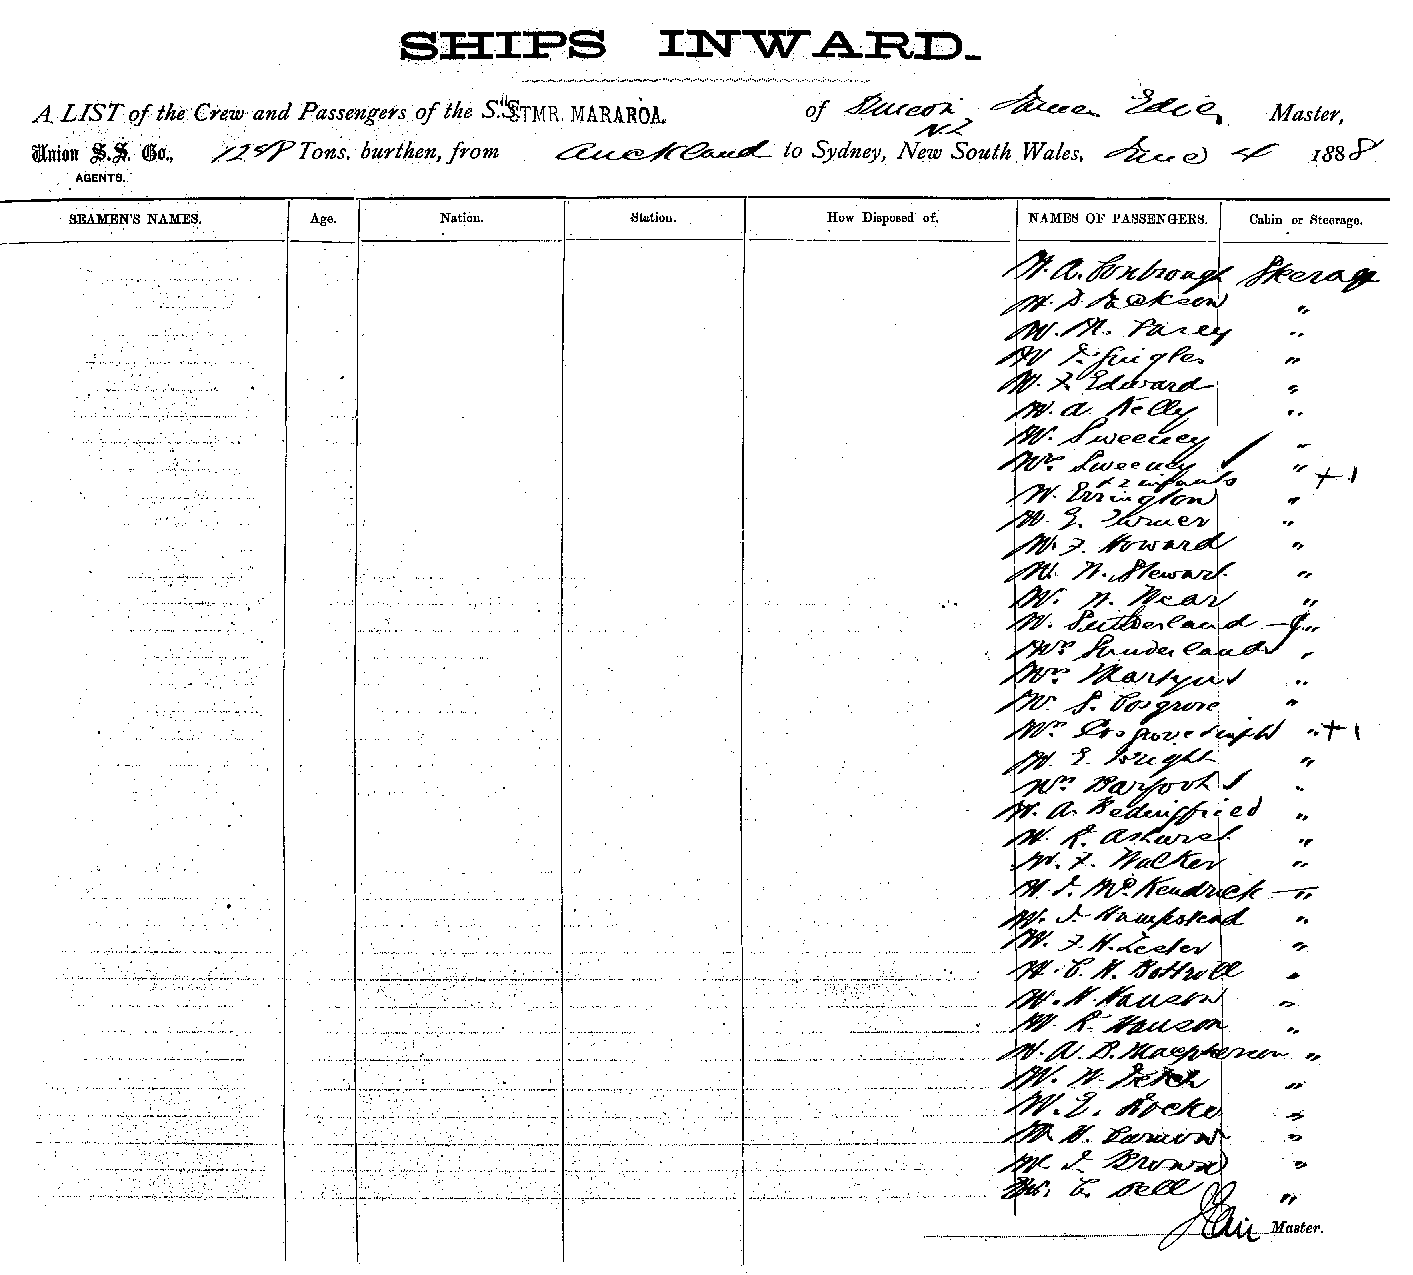 SHIPS INWARD.
A LIST of the Crew and Passengers of the S.S. STMR. MARAROA. of James Edie, Master,
Union S.S. Co., Tons, burthen, from Auckland NZ to Sydney, New South Wales, June 4 1888
AGENTS.
SEAMEN'S NAMES. Age. Nation. Station. How Disposed of. NAMES OF PASSENGERS. Cabin or Steerage.
Mr. A. Steerage
Mr. Jackson "
Mr. "
Mr. "
Mr. F. Edward "
Mr. A. Kelly "
Mr. Sweeney "
Mrs Sweeney " + 1
& 2 infants
Mr. Errington "
Mr. E. Turner "
Mr. F. Howard "
Mr. Stewart "
Mr. Wear "
Mr. Sutherland "
Mrs "
Mrs "
Mr. S. Cosgrove "
Mrs Cosgrove & inft " + 1
Mr. E. Wright "
Mrs Barfoot "
Mr. A. Bedingfield "
Mr. R. Ashurst "
Mr. F. Walker "
Mr. J. McKendrick "
Mr. J. Hampstead "
Mr. F. H. Lester "
Mr. C. H. "
Mr. H. Hanson "
Mr. R. Hanson "
Mr. A. B. Macpherson "
Mr. "
Mr. E. Locke "
Mr. H. "
Mr. J. Brown "
Mr. C. Bell "
Master.